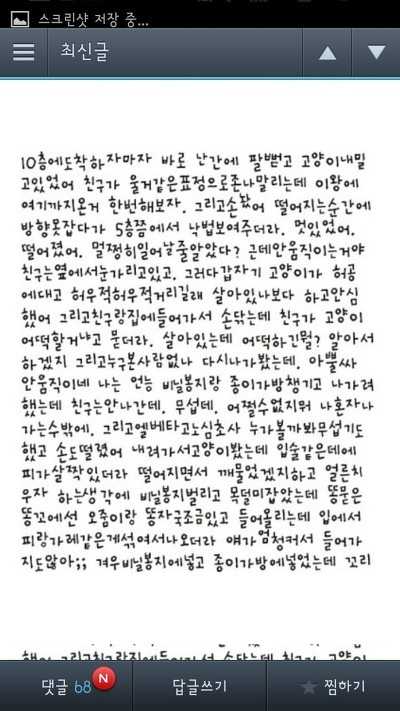 스크린샷 저장 중...
최신글
10층에도착하자마자 바로 난간에 팔뻗고 고양이내밀
고있었어 친구가 울거같은표정으로존나말리는데 이왕에
여기까지온거 한번해보자. 그리고손놨어 떨어지는순간에
방향못잡다가 5층쯤에서 낙법보여주더라. 멋있었어.
떨어졌어. 멀쩡히일어날줄알았다? 근데안움직이는거야
친구는옆에서눈가리고있고. 그러다갑자기 고양이가 허공
에대고 허우적허우적거리길래 살아있나보다 하고안심
했어 그리고친구랑집에들어가서 손닦는데 친구가 고양이
어떡할거냐고 묻더라. 살아있는데 어떡하긴뭘? 알아서
하겠지 그리고누구본사람없나 다시나가봤는데. 아뿔싸
안움직이네 나는 얼능 비닐봉지랑 종이가방챙기고 나가려
했는데 친구는안나간데. 무섭데. 어쩔수없지뭐 나혼자나
가는수밖에. 그리고엘베타고노심초사 누가볼까봐무섭기도
했고 손도떨렸어 내려가서고양이봤는데 입술같은데에
피가살짝있더라 떨어지면서 깨물었겠지하고 얼른치
우자 하는생각에 비닐봉지벌리고 목덜미잡았는데 똥묻은
똥꼬에선 오줌이랑 똥자국조금있고 들어올리는데 입에서
피랑가레같은게섞여서나오더라 얘가엄청커서 들어가
지도않아;; 겨우비닐봉지에넣고 종이가방에넣었는데 꼬리
했어 그리고친구랑집에들어가서 손닦는데 친구가 고양이
댓글 68 N
답글쓰기
찜하기